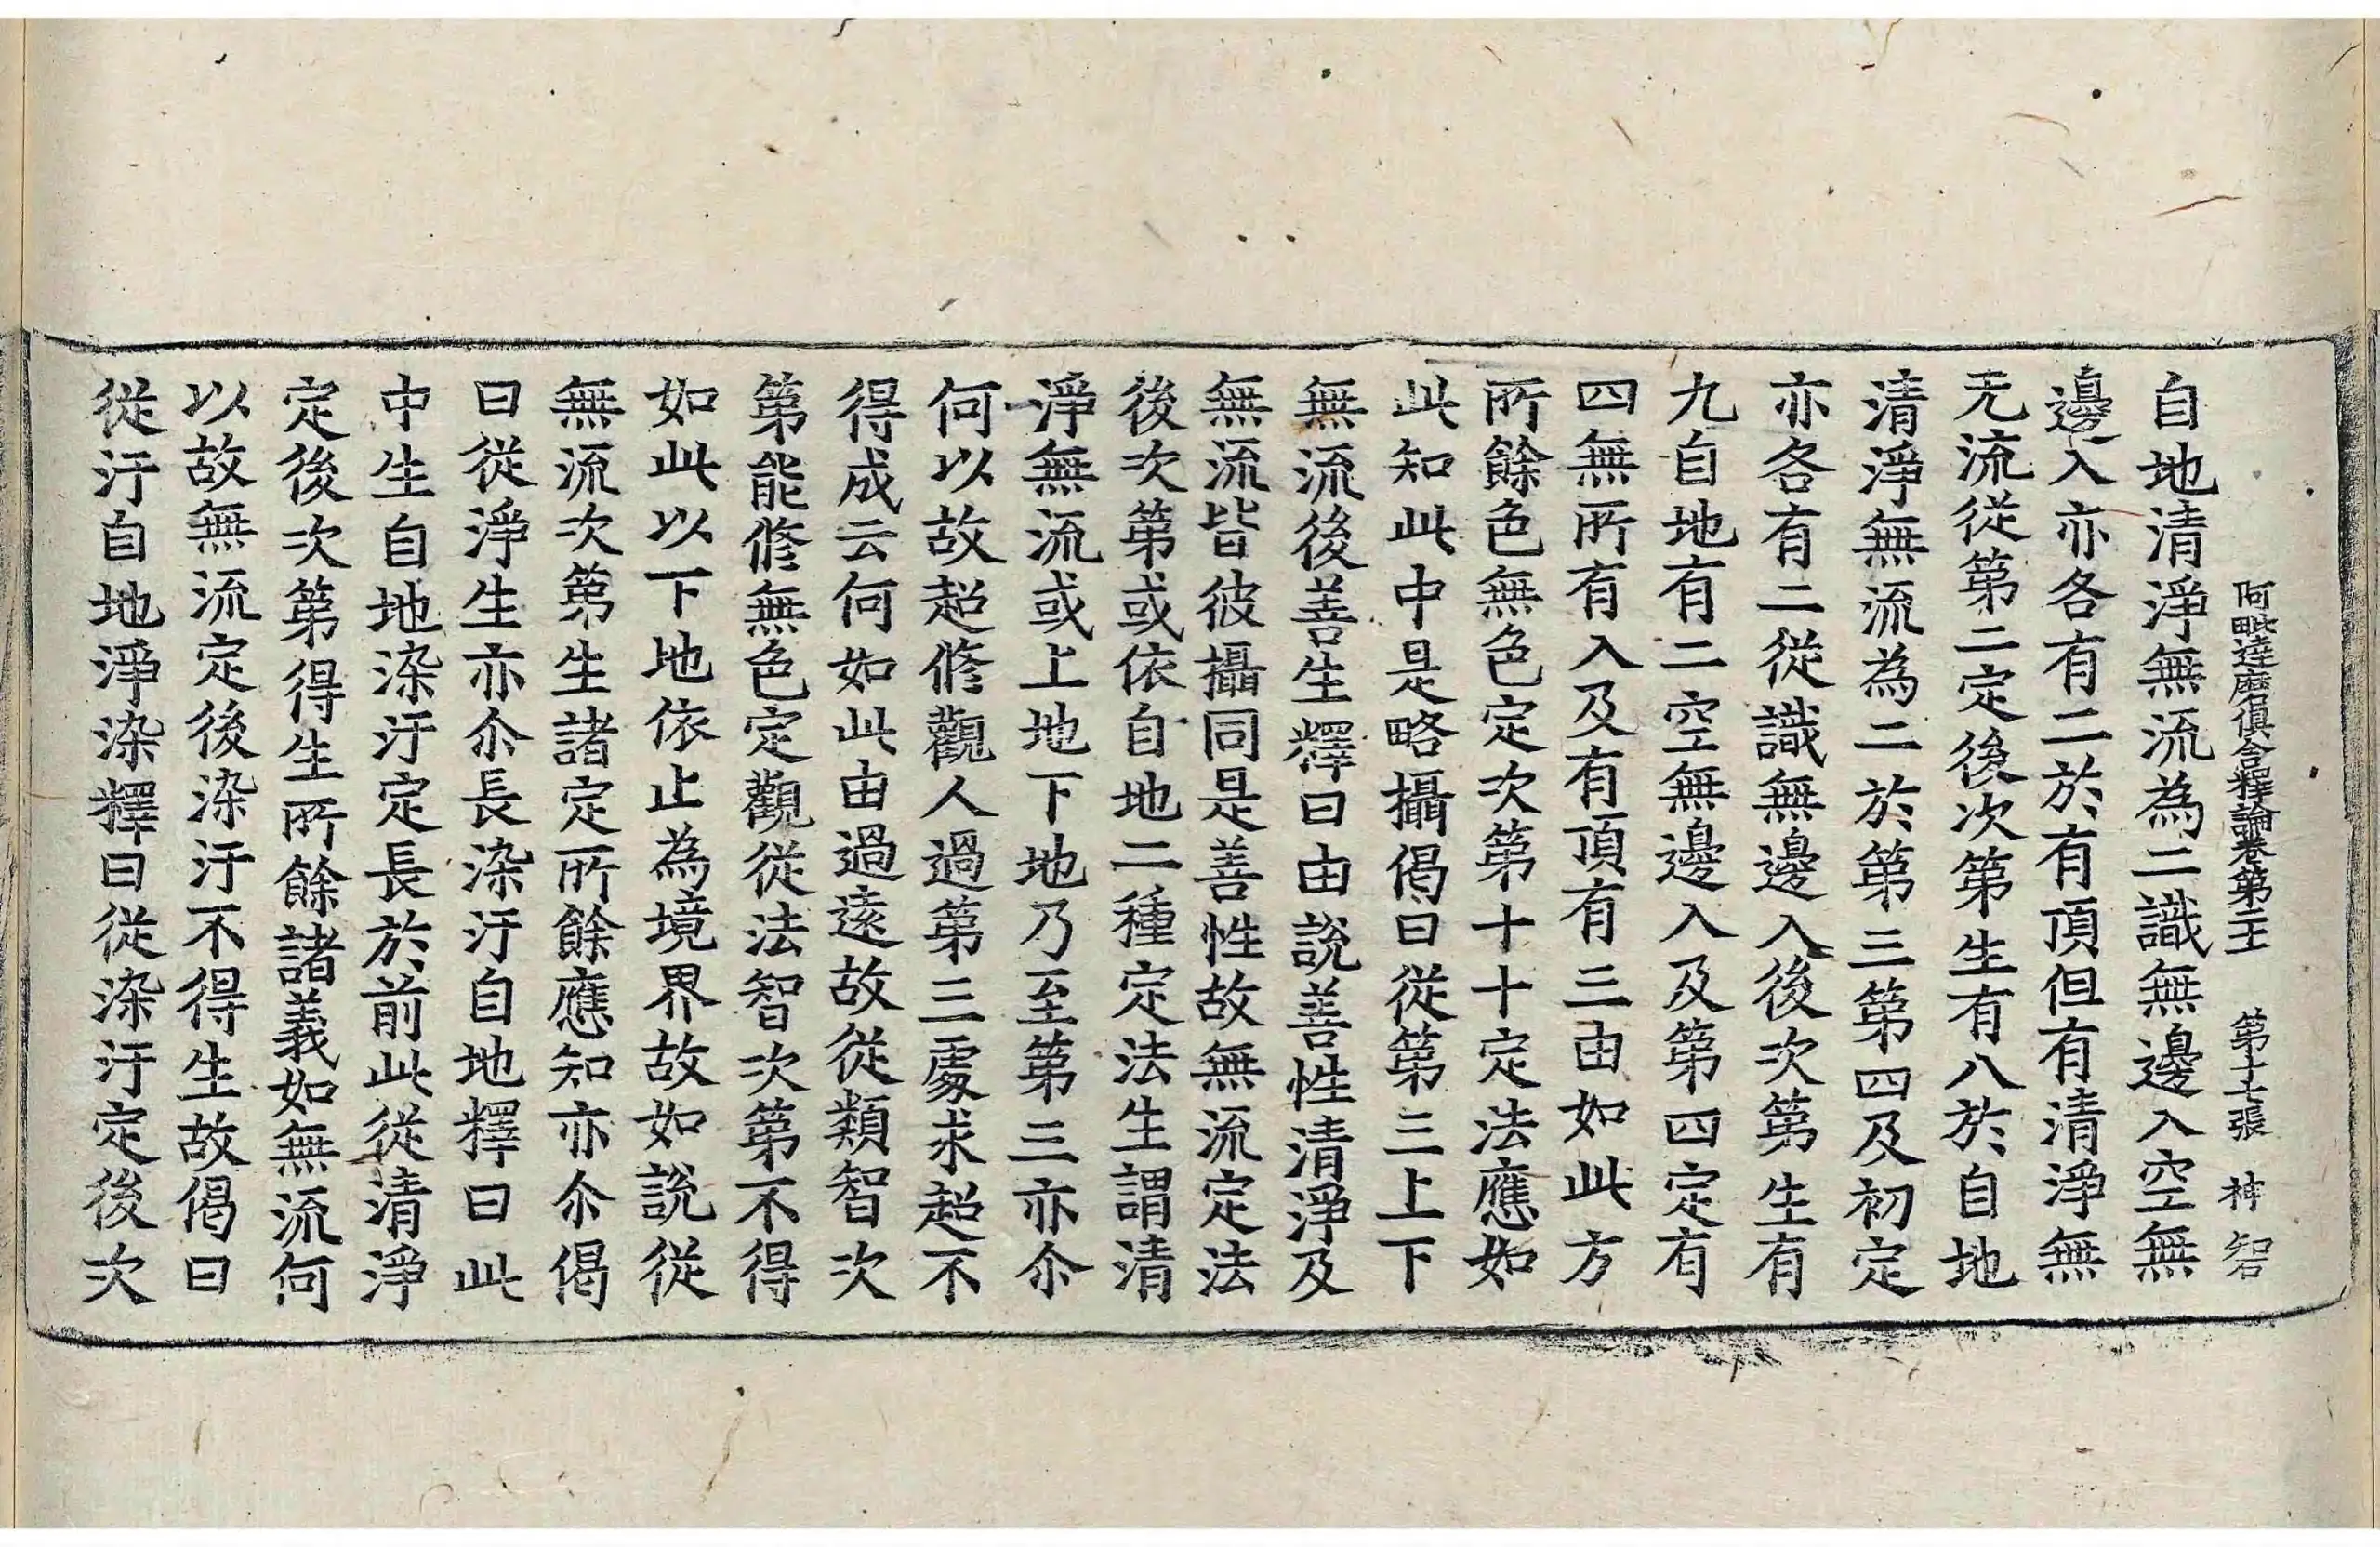 阿毗達磨俱舍釋論卷第二十一 第十七張 神智
自地清淨無流為二識無邊入空無
邊入亦各有二於有頂但有清淨無
无流從第二定後次第生有八於自地
清淨無流為二於第三第四及初定
亦各有二從識無邊入後次第生有
九自地有二空無邊入及第四定有
四無所有入及有頂有三由如此方
所餘色無色定次第十十定法應如
此知此中是略攝偈曰從第三上下
無流後善生釋曰由說善性清淨及
無流皆彼攝同是善性故無流定法
後次第或依自地二種定法生謂清
淨無流或上地下地乃至第三亦尒
何以故超修觀人過第三處求超不
得成云何如此由過遠故從類智次
第能修無色定觀從法智次第不得
如此以下地依止為境界故如說從
無流次第生諸定所餘應知亦尒偈
曰從淨生亦尒長染汙自地釋曰此
中生自地染汙定長於前此從清淨
定後次第得生所餘諸義如無流何
以故無流定後染汙不得生故偈曰
從汙自地淨染釋曰從染汙定後次